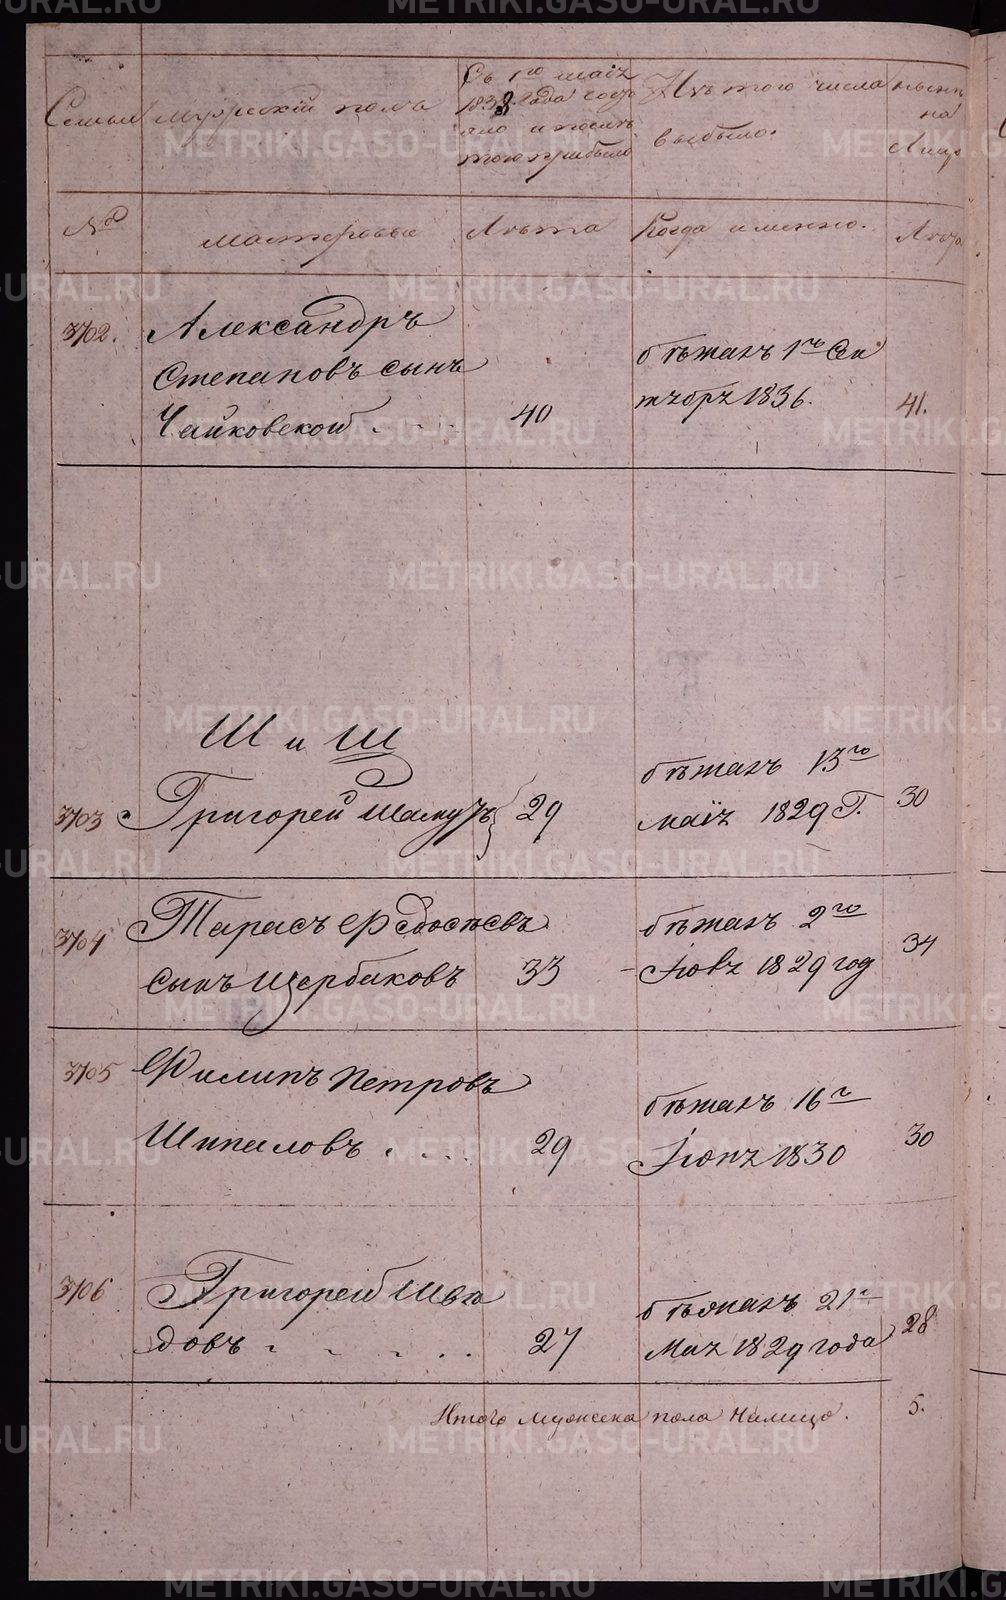 Семьи
мужескій полъ
Съ 1го маія
1838 года состо
яло и послѣ
того прибыло
Изъ того числа
выбыло.
нынѣ
на
Лицо
№
мастеровые
Лѣта
Когда именно.
Лѣта
3702.
Александръ
Степановъ сынъ
Чайковской . . . .
40
бѣжалъ 1го Сен
тября 1836.
41.
Ш и Щ
3703
Григорей Шамутъ
29
бѣжалъ 13го
маія 1829 Г.
30
3704
Тарасъ Федосѣевъ
сынъ Щербаковъ
33
бѣжалъ 2го
Іюля 1829 год
34
3705
Филипъ Петровъ
Шипиловъ . . . .
29
бѣжалъ 16г
Іюня 1830
30
3706
Григорей Шве
довъ . . . . . .
27
бѣжалъ 21г
Мая 1829 года
28
Итого мужеска пола налицо.
5.
METRIKI.GASO-URAL.RU